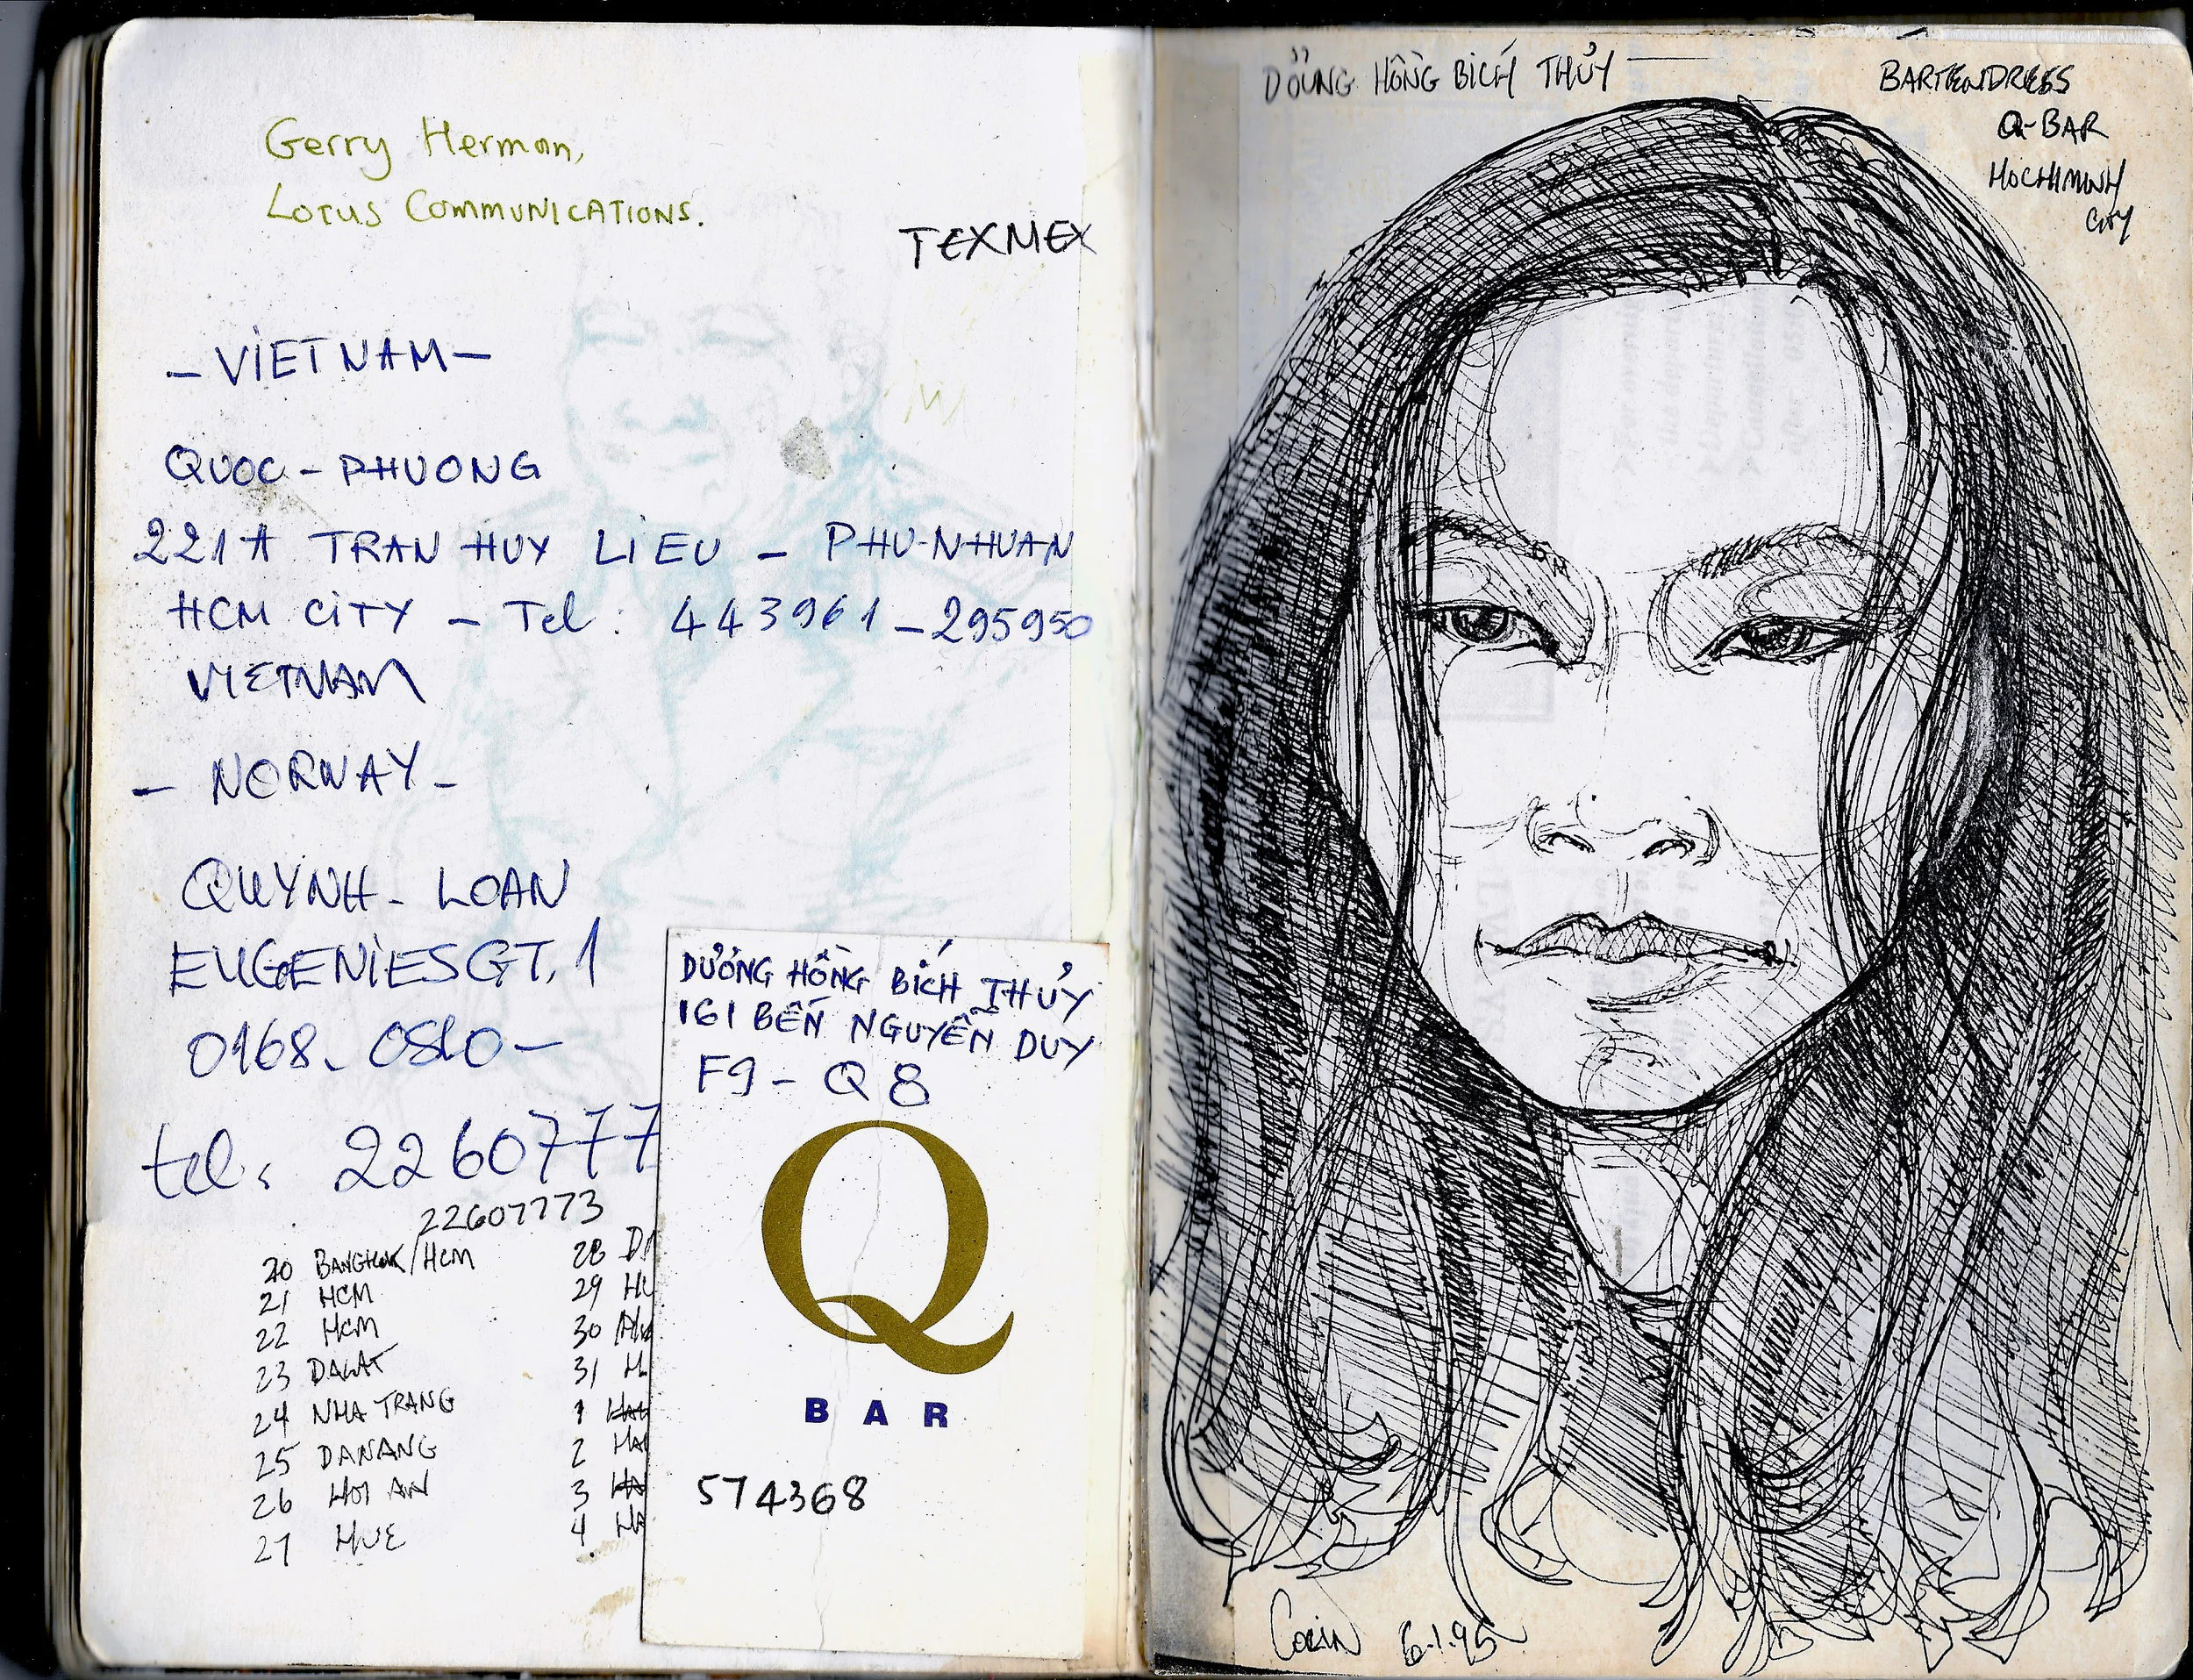 Gerry Herman,
LOTUS COMMUNICATIONS.
TEXMEX
– VIETNAM –
QUOC – PHUONG
221A TRAN HUY LIEU – PHU-NHUAN
HCM CITY – Tel : 443961 – 295950
VIETNAM
– NORWAY –
QUYNH - LOAN
EUGENIESGT, 1
0168 - OSLO –
tel : 2260777
22607773
20 BANGKOK/HCM
21 HCM
22 HCM
23 DALAT
24 NHA TRANG
25 DANANG
26 HOI AN
27 HUE
28
29
30
31
1
2
3
4
DƯƠNG HỒNG BÍCH THỦY
161 BẾN NGUYỄN DUY
F9 – Q 8
Q
BAR
574368
DƯƠNG HỒNG BÍCH THỦY —
BARTENDRESS
Q-BAR
HOCHIMINH
CITY
6.1.95